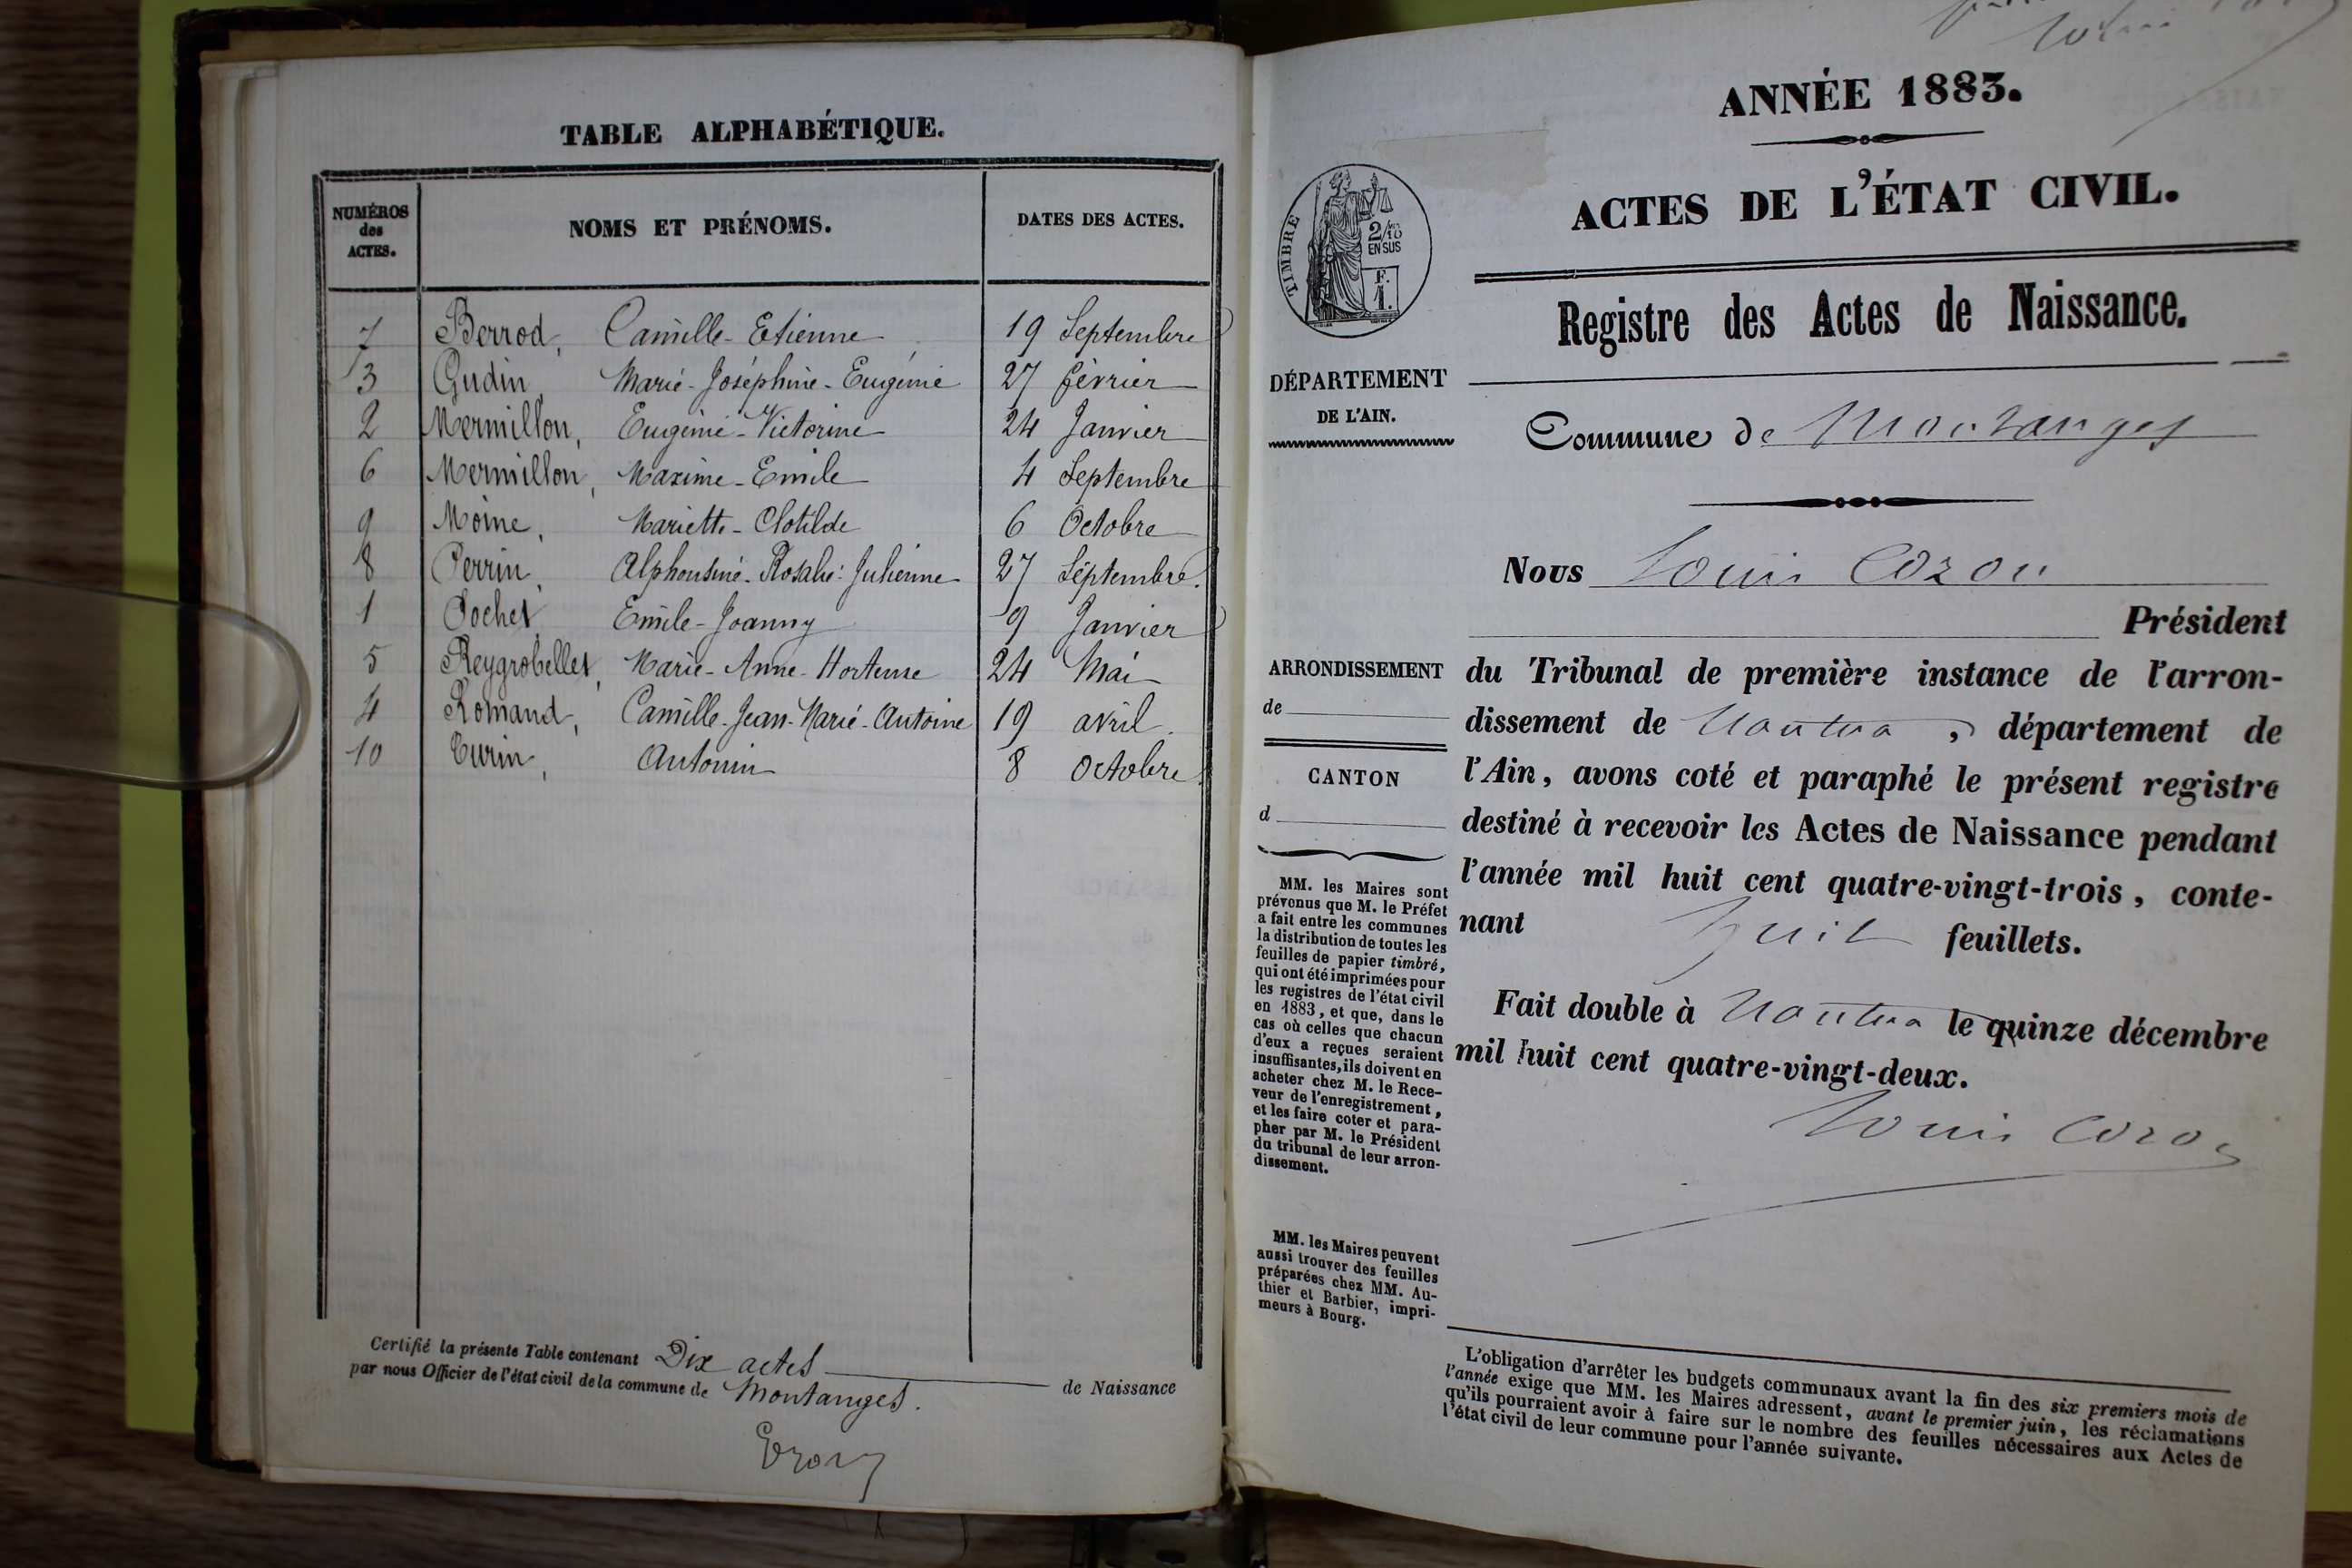 TABLE ALPHABÉTIQUE.
NUMÉROS des ACTES. NOMS ET PRÉNOMS. DATES DES ACTES.
7 Berrod, Camille-Etienne 19 Septembre
3 Gudin, Marie-Joséphine-Eugénie 27 février
2 Mermillon, Eugénie-Victorine 24 Janvier
6 Mermillon, Maxime-Emile 4 Septembre
9 Moine, Mariette-Clotilde 6 Octobre
8 Perrin, Alphonsine-Rosalie-Julienne 27 Septembre.
1 Pochet Emile-Joanny 9 Janvier
5 Reygrobellet, Marie-Anne-Hortense 24 Mai
4 Romand, Camille-Jean-Marie-Antoine 19 avril.
10 Turin, Antonin 8 Octobre
Certifié la présente Table contenant Dix actes de Naissance
par nous Officier de l'état civil de la commune de Montanges.
ANNÉE 1883.
ACTES DE L'ÉTAT CIVIL.
TIMBRE
2/10
EN SUS
F.
1.
Registre des Actes de Naissance.
DÉPARTEMENT
DE L'AIN.
Commune de Montanges
Nous Louis Cozon
Président
ARRONDISSEMENT
de
CANTON
d
du Tribunal de première instance de l'arron-
dissement de Nantua, département de
l'Ain, avons coté et paraphé le présent registre
destiné à recevoir les Actes de Naissance pendant
l'année mil huit cent quatre-vingt-trois, conte-
nant huit feuillets.
Fait double à Nantua le quinze décembre
mil huit cent quatre-vingt-deux.
Louis Cozon
MM. les Maires sont
prévenus que M. le Préfet
a fait entre les communes
la distribution de toutes les
feuilles de papier timbré,
qui ont été imprimées pour
les registres de l'état civil
en 1883, et que, dans le
cas où celles que chacun
d'eux a reçues seraient
insuffisantes, ils doivent en
acheter chez M. le Rece-
veur de l'enregistrement,
et les faire coter et para-
pher par M. le Président
du tribunal de leur arron-
dissement.
MM. les Maires peuvent
aussi trouver des feuilles
préparées chez MM. Au-
thier et Barbier, impri-
meurs à Bourg.
L'obligation d'arrêter les budgets communaux avant la fin des six premiers mois de
l'année exige que MM. les Maires adressent, avant le premier juin, les réclamations
qu'ils pourraient avoir à faire sur le nombre des feuilles nécessaires aux Actes de
l'état civil de leur commune pour l'année suivante.